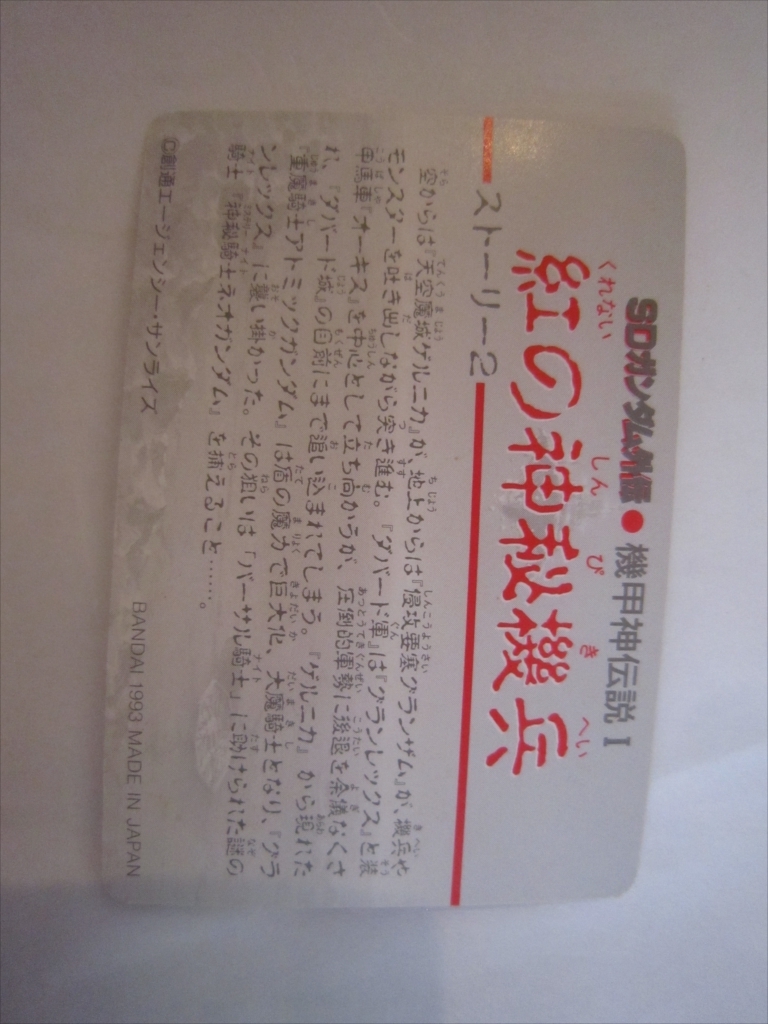 SDガンダム外伝●機甲神伝説 I
紅の神秘機兵
ストーリー2
空からは『天空魔城ゲルニカ』が、地上からは『侵攻要塞グランザム』が、機兵や
モンスターを吐き出しながら突き進む。『ダバード軍』は『グランレックス』と装
甲馬車『オーキス』を中心として立ち向かうが、圧倒的軍勢に後退を余儀なくさ
れ、『ダバード城』の目前にまで追い込まれてしまう。『ゲルニカ』から現れた
『重魔騎士アトミックガンダム』は盾の魔力で巨大化、大魔騎士となり、『グラ
ンレックス』に襲い掛かった。その狙いは「バーサル騎士」に助けられた謎の
騎士『神秘騎士ネオガンダム』を捕えること……。
©創通エージェンシー・サンライズ
BANDAI 1993 MADE IN JAPAN